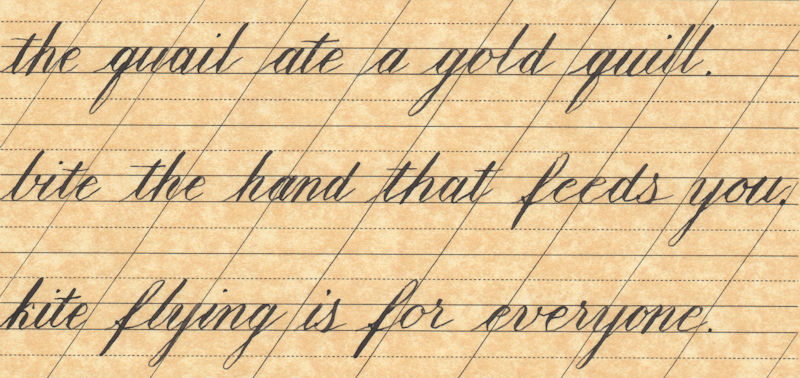 the quail ate a gold quill.
bite the hand that feeds you.
kite flying is for everyone.